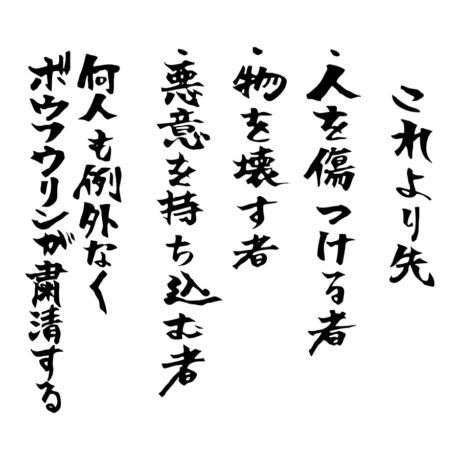 これより先
・人を傷つける者
・物を壊す者
・悪意を持ち込む者
何人も例外なく
ボウフウリンが粛清する